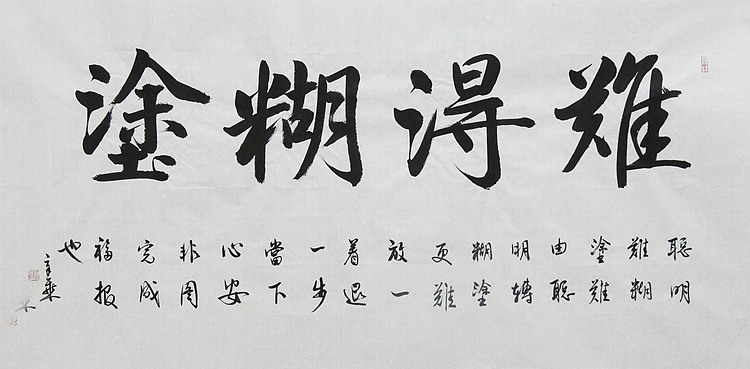 難得糊塗
聪明
難糊
塗難
由聪
明轉
糊塗
更難
放一
着退
一步
當下
心安
非圖
完成
福报
也